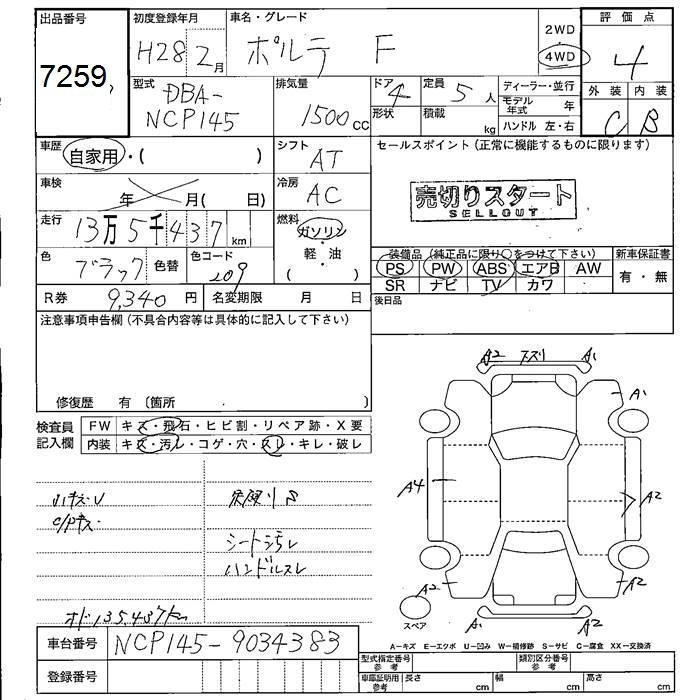 出品番号
7259
初度登録年月
H28 2月
車名・グレード
ポルテ F
2WD
4WD
評価点
4
外装 内装
C B
型式
DBA-
NCP145
排気量
1500cc
ドア 4
形状
定員 5人
積載 kg
ディーラー・並行
モデル年式 年
ハンドル 左・右
車歴
自家用・( )
シフト
AT
セールスポイント (正常に機能するものに限ります)
売切りスタート
SELLOUT
車検 年 月( 日)
冷房
AC
走行
13万5千437km
燃料
ガソリン
軽・油
( )
色
ブラック 色替
色コード
209
装備品 (純正品に限り○をつけて下さい)
PS PW ABS エアB AW
SR ナビ TV カワ
新車保証書
有・無
R券 9,340円
名変期限 月 日
後日品
注意事項申告欄 (不具合内容等は具体的に記入して下さい)
修復歴 有 〔箇所 〕
検査員
記入欄
FW キズ・飛石・ヒビ割・リペア跡・X要
内装 キズ・汚レ・コゲ・穴・スレ・キレ・破レ
シート汚れ
ハンドルスレ
オド135,437km
A2 スズリ A1
A1
A4
A2
A2
A2
A1 A2
スペア
A-キズ E-エクボ U-凹み W-補修跡 S-サビ C-腐食 XX-交換済
車台番号 NCP145-9034383
登録番号
型式指定番号
参考
類別区分番号
参考
車庫証明用
参考
長さ cm
幅 cm
高さ cm